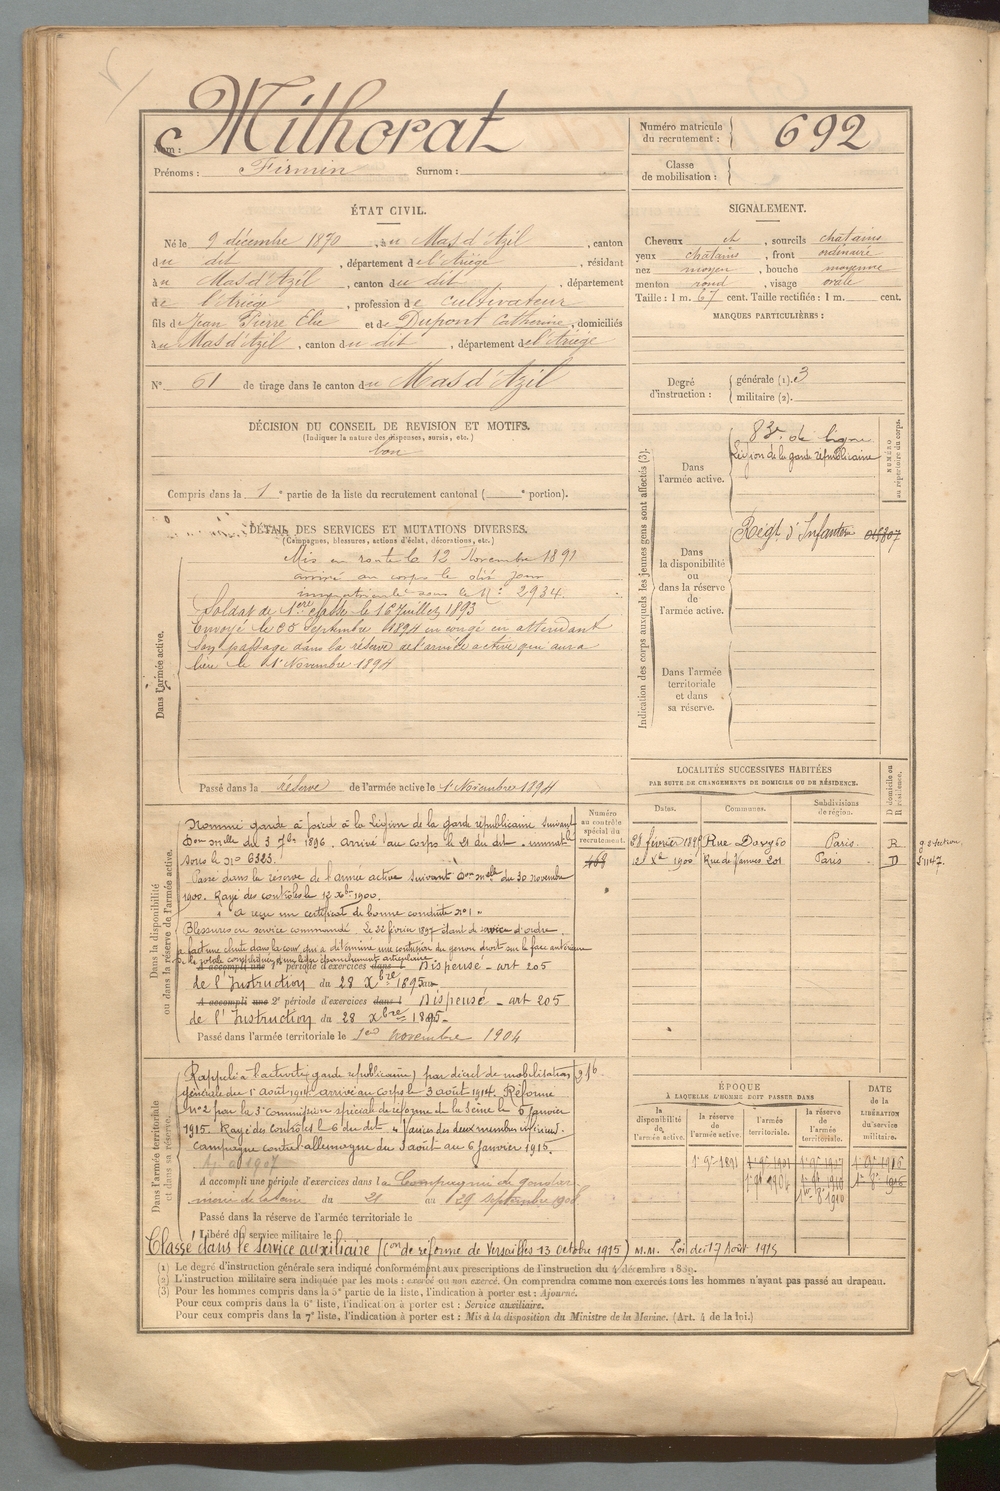 Nom : Milhorat
Prénoms : Firmin Surnom :
Numéro matricule du recrutement : 692
Classe de mobilisation :
ÉTAT CIVIL.
Né le 9 décembre 1870, à u Mas d'Azil, canton
du dit, département de l'Ariège, résidant
à u Mas d'Azil, canton du dit, département
de l'Ariège, profession de cultivateur
fils de Jean Pierre Elie et de Dupont Catherine, domiciliés
à u Mas d'Azil, canton du dit, département de l'Ariège
N° 61 de tirage dans le canton du Mas d'Azil
SIGNALEMENT.
Cheveux et, sourcils châtains
yeux châtains, front ordinaire
nez moyen, bouche moyenne
menton rond, visage ovale
Taille : 1 m. 67 cent. Taille rectifiée : 1 m. cent.
MARQUES PARTICULIÈRES :
Degré d'instruction : générale (1). 3
militaire (2).
DÉCISION DU CONSEIL DE REVISION ET MOTIFS.
(Indiquer la nature des dispenses, sursis, etc.)
bon
Compris dans la 1e partie de la liste du recrutement cantonal ( e portion).
DÉTAIL DES SERVICES ET MUTATIONS DIVERSES.
(Campagnes, blessures, actions d'éclat, décorations, etc.)
Dans l'armée active.
Mis en route le 12 Novembre 1891
arrivé au corps le dit jour
immatriculé sous le N° 2934.
Soldat de 1ère classe le 16 Juillet 1893
Envoyé le Septembre 1894 en congé en attendant
son passage dans la réserve de l'armée active qui aura
lieu le 1r Novembre 1894
Passé dans la réserve de l'armée active le 1r Novembre 1894
Indication des corps auxquels les jeunes gens sont affectés (3).
NUMÉRO au répertoire du corps.
Dans l'armée active.
83e de ligne
Légion de la garde républicaine
Dans la disponibilité ou dans la réserve de l'armée active.
Régt d'Infanterie
Dans l'armée territoriale et dans sa réserve.
Dans la disponibilité ou dans la réserve de l'armée active.
Nommé garde à pied à la Légion de la garde républicaine suivant
Don mlle du 3 7bre 1896. Arrivé au corps le 21 du dit. immatlé
sous le N° 6323.
Passé dans la réserve de l'armée active suivant Don mlle du 30 novembre
1900. Rayé des contrôles le 12 Xbre 1900.
A reçu un certificat de bonne conduite N° 1.
Blessures en service commandé. Le février 1897 étant de service d'ordre
a fait une chute dans la cour qui a déterminé une contusion du genou droit sur la face antérieure
de la rotule compliquée d'un léger épanchement articulaire
A accompli une 1e période d'exercices dans l Dispensé - art 205
de l'Instruction du 28 Xbre 1895
A accompli une 2e période d'exercices dans l Dispensé - art 205
de l'Instruction du 28 Xbre 1895
Passé dans l'armée territoriale le 1er novembre 1904
Numéro au contrôle spécial du recrutement.
468
LOCALITÉS SUCCESSIVES HABITÉES
PAR SUITE DE CHANGEMENTS DE DOMICILE OU DE RÉSIDENCE.
Dates. Communes. Subdivisions de région. D domicile ou R résidence.
février 189 Rue Paris. R
12 Xbre 1900 Rue de Vanves 201 Paris D
Dans l'armée territoriale et dans sa réserve.
Rappelé à l'activité (garde républicaine) par décret de mobilisation
générale du 1er Août 1914 arrivé au corps le 3 août 1914. Réformé
n° 2 par la 3e commission spéciale de réforme de la Seine le 5 janvier
1915. Rayé des contrôles le 6 du dit. "Varices des deux membres inférieurs".
Campagne contre l'allemagne du 3 août au 6 janvier 1915.
A accompli une période d'exercices dans la Compagnie de gendar
merie de la Seine du 21 au 29 septembre 1908
Passé dans la réserve de l'armée territoriale le
Libéré du service militaire le
Classé dans le service auxiliaire (Con de réforme de Versailles 13 octobre 1915) M.M. Loi du 17 Août 1915
ÉPOQUE
À LAQUELLE L'HOMME DOIT PASSER DANS
la disponibilité de l'armée active. la réserve de l'armée active. l'armée territoriale. la réserve de l'armée territoriale. DATE de la LIBÉRATION du service militaire.
(1) Le degré d'instruction générale sera indiqué conformément aux prescriptions de l'instruction du 4 décembre 1889.
(2) L'instruction militaire sera indiquée par les mots : exercé ou non exercé. On comprendra comme non exercés tous les hommes n'ayant pas passé au drapeau.
(3) Pour les hommes compris dans la 5e partie de la liste, l'indication à porter est : Ajourné.
Pour ceux compris dans la 6e liste, l'indication à porter est : Service auxiliaire.
Pour ceux compris dans la 7e liste, l'indication à porter est : Mis à la disposition du Ministre de la Marine. (Art. 4 de la loi.)